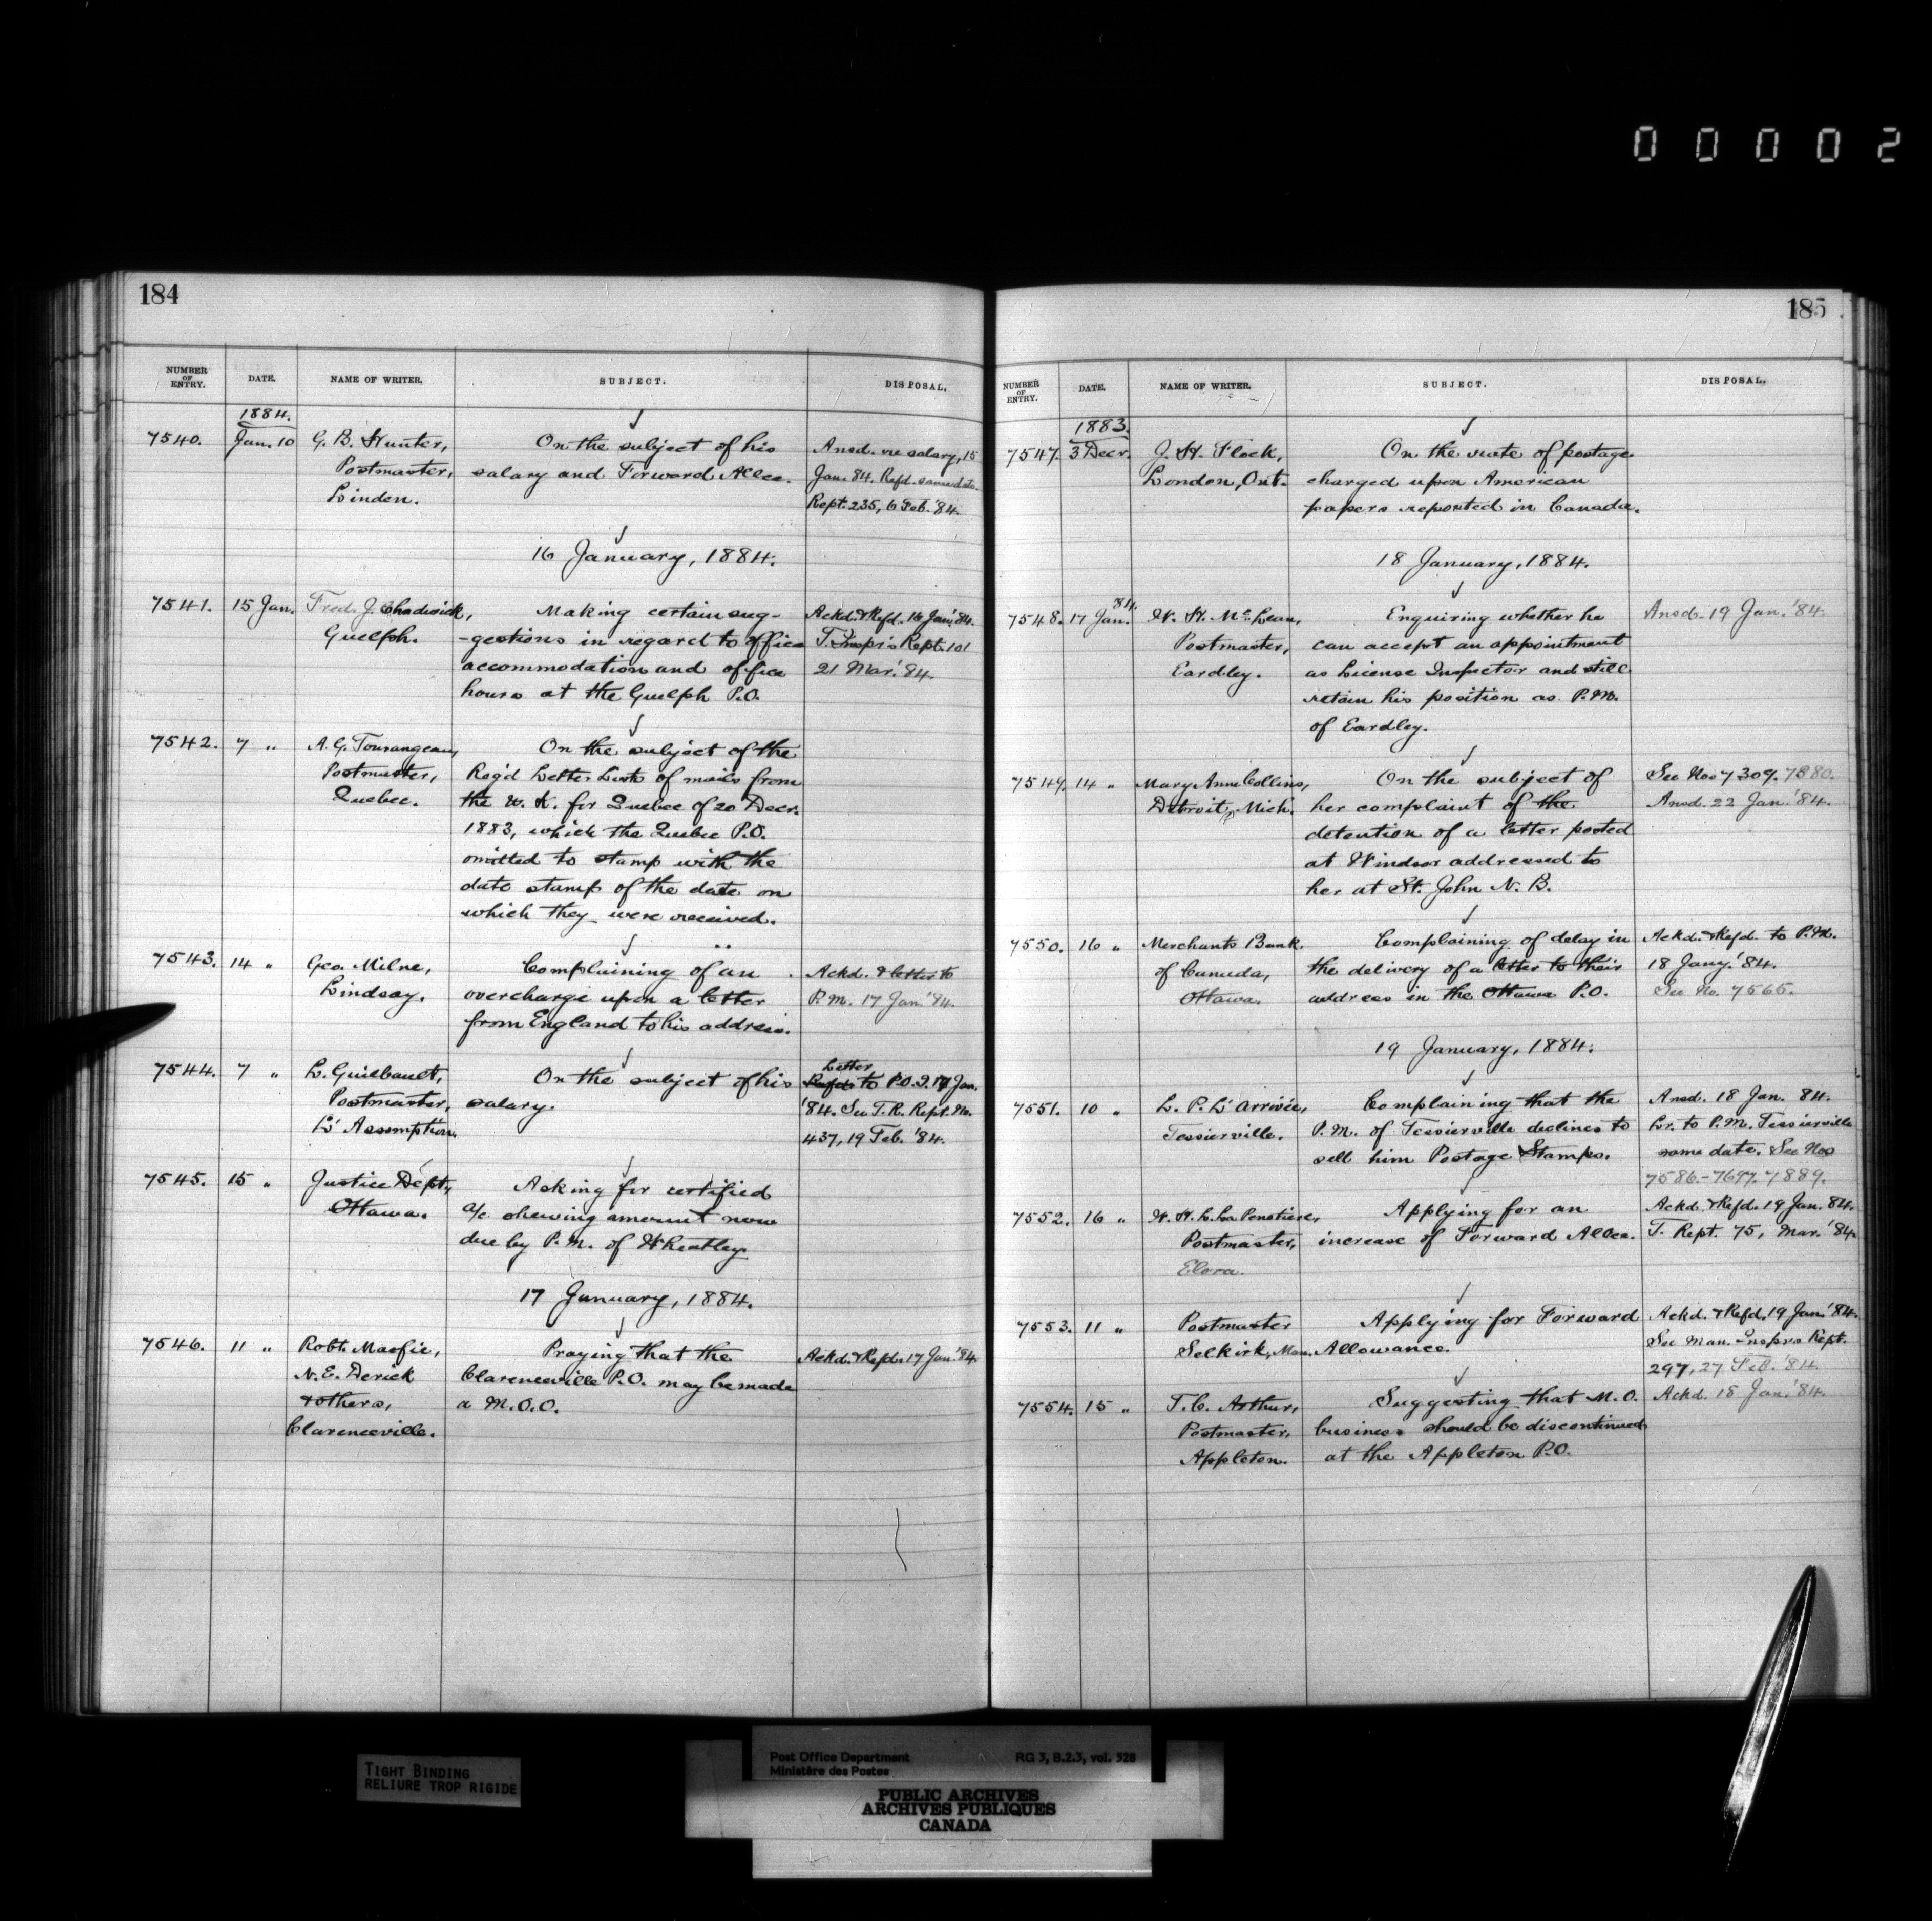 00002
184
NUMBER OF ENTRY. DATE. NAME OF WRITER. SUBJECT. DISPOSAL.
1884.
7540. Jan. 10 G. B. Hunter, On the subject of his Ansd. re salary, 15
Postmaster, salary and Forward Allce. Jan. 84. Refd. same date.
Linden. Rept. 235, 6 Feb. '84.
16 January, 1884.
7541. 15 Jan. Fred. J. Chadwick, Making certain sug- Ackd. & Refd. 16 Jan. '84.
Guelph. -gestions in regard to office T. Inspr's Rept. 101
accommodation and office 21 Mar. '84.
hours at the Guelph P.O.
7542. 7 " A. G. Tourangeau, On the subject of the
Postmaster, Reg'd Letter Lists of mails from
Quebec. the U. K. for Quebec of 20 Decr.
1883, which the Quebec P.O.
omitted to stamp with the
date stamp of the date on
which they were received.
7543. 14 " Geo. Milne, Complaining of an Ackd. & letter to
Lindsay. overcharge upon a letter P.M. 17 Jan. '84.
from England to his address.
7544. 7 " L. Guilbault, On the subject of his Letter to P.O.I. 17 Jan.
Postmaster, salary. '84. See T.R. Rept. No.
L'Assomption. 437, 19 Feb. '84.
7545. 15 " Justice Dept., Asking for certified
Ottawa. a/c shewing amount now
due by P.M. of Wheatley.
17 January, 1884.
7546. 11 " Robt. Macfie, Praying that the Ackd. & Refd. 17 Jan. '84.
N. E. Derick Clarenceville P.O. may be made
& others, a M.O.O.
Clarenceville.
185
NUMBER OF ENTRY. DATE. NAME OF WRITER. SUBJECT. DISPOSAL.
1883.
7547. 3 Decr. J. H. Flock, On the rate of postage
London, Ont. charged upon American
papers reposted in Canada.
18 January, 1884.
7548. 17 Jan. '84. W. H. McLean, Enquiring whether he Ansd. 19 Jan. '84.
Postmaster, can accept an appointment
Eardley. as License Inspector and still
retain his position as P.M.
of Eardley.
7549. 14 " Mary Anne Collins, On the subject of See Nos 7309. 7380.
Detroit, Mich. her complaint of the Ansd. 22 Jan. '84.
detention of a letter posted
at Windsor addressed to
her at St. John N. B.
7550. 16 " Merchants Bank Complaining of delay in Ackd. & Refd. to P.M.
of Canada, the delivery of a letter to their 18 Jany. '84.
Ottawa. address in the Ottawa P.O. See No. 7565.
19 January, 1884.
7551. 10 " L. P. L'Arrivée, Complaining that the Ansd. 18 Jan. 84.
Tessierville. P.M. of Tessierville declines to Lr. to P.M. Tessierville
sell him Postage Stamps. same date. See Nos
7586-7697. 7889.
7552. 16 " W. H. L. La Penotiere, Applying for an Ackd. & Refd. 19 Jan. 84.
Postmaster, increase of Forward Allce. T. Rept. 75, Mar. '84.
Elora.
7553. 11 " Postmaster Applying for Forward Ackd. & Refd. 19 Jan. '84.
Selkirk, Man. Allowance. See Man. Inspr's Rept.
297, 27 Feb. '84.
7554. 15 " T. C. Arthur, Suggesting that M.O. Ackd. 18 Jan. '84.
Postmaster, business should be discontinued
Appleton. at the Appleton P.O.
TIGHT BINDING
RELIURE TROP RIGIDE
Post Office Department RG 3, B.2.3, vol. 528
Ministère des Postes
PUBLIC ARCHIVES
ARCHIVES PUBLIQUES
CANADA